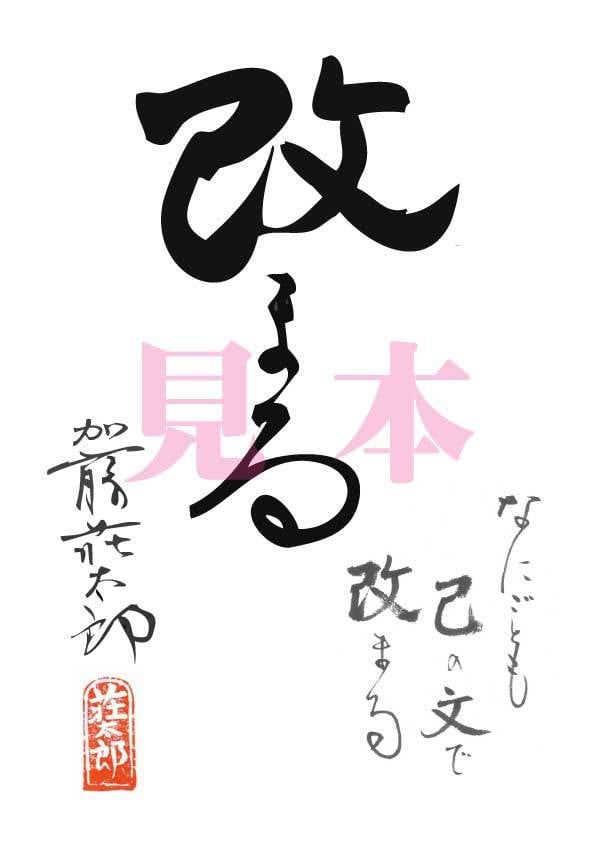 改まる
見本
なにごとも
己の文で
改まる
加藤荘太郎
荘太郎